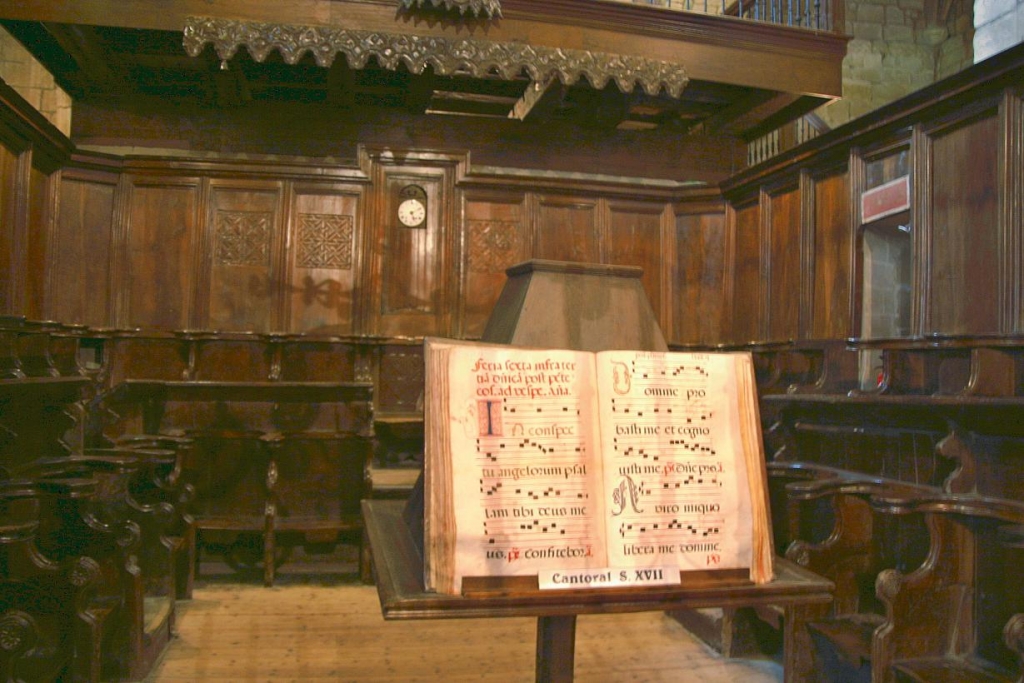 Feria sexta infra ter
tiā dn̄icā post pēte
cos. ad vespe. Aña.
IN conspec
tu angelorum psal
lam tibi deus me
us. ps̄. Confitebor.
Domine pro
basti me et cogno
uisti me. ps. Dn̄e proa.
A viro iniquo
libera me domine.
ps
Cantoral S. XVII